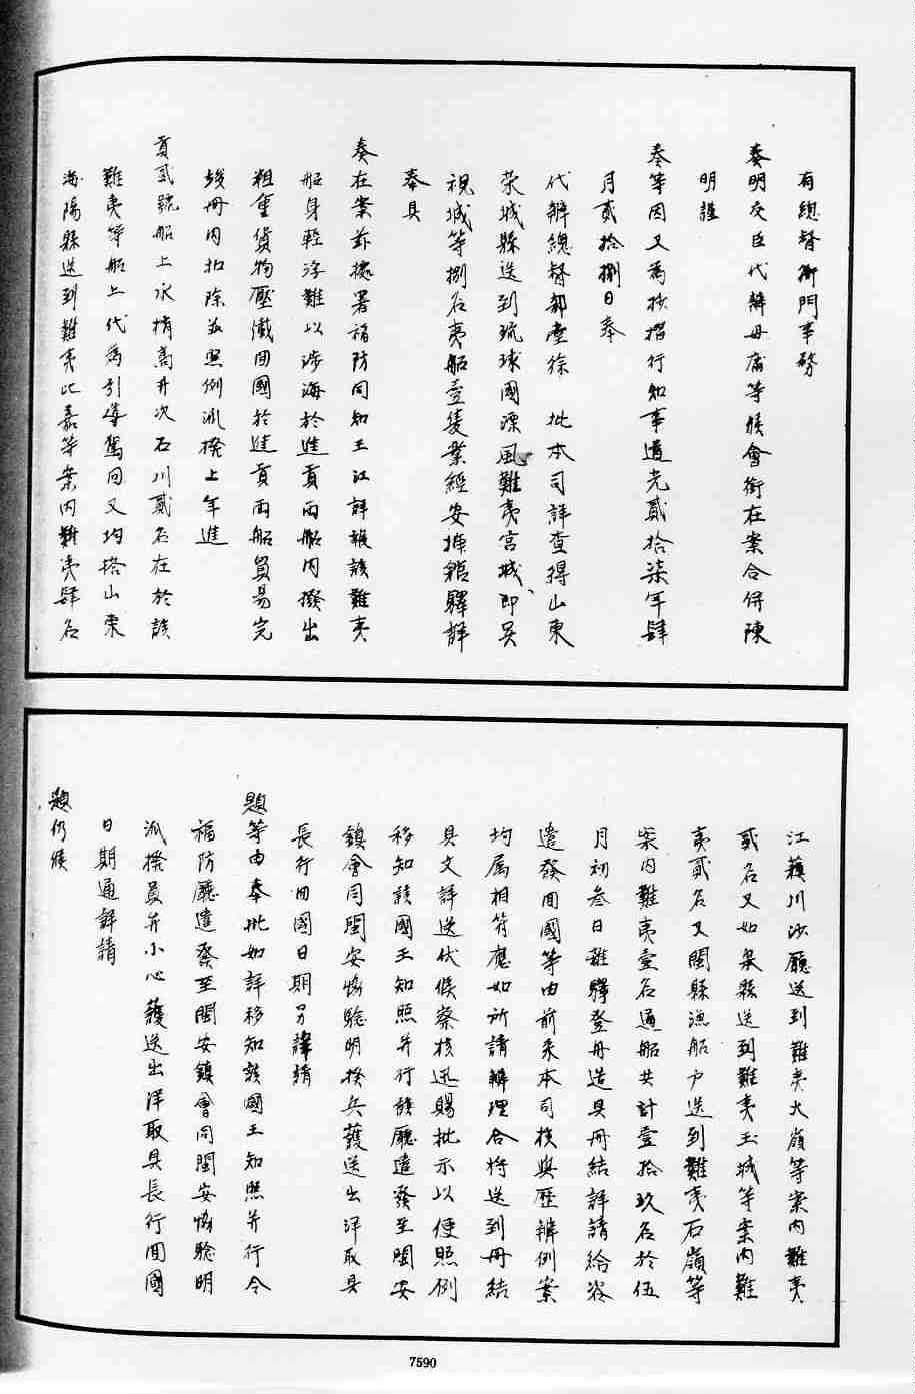 有總督衙門事務
奏明交臣代辦毋庸等候會銜在案合併陳
明謹
奏等因又為抄摺行知事道光貳拾柒年肆
月貳拾捌日奉
代辦總督部堂徐 批本司詳查得山東
榮城縣送到琉球國漂風難夷宮城即吳
視城等捌名夷船壹隻業經安插館驛詳
奉具
奏在案茲據署福防同知王江詳報該難夷
船身輕浮難以涉海於進貢兩船內撥出
粗重貨物壓儎回國於進貢兩船貿易完
竣冊內扣除並照例派撥上年進
貢貳號船上水梢高升次石川貳名在於該
難夷等船上代為引導駕回又均搭山東
海陽縣送到難夷比嘉等案內難夷肆名
江蘇川沙廳送到難夷大嶺等案內難夷
貳名又如皋縣送到難夷玉城等案內難
夷貳名又閩縣漁船戶送到難夷石嶺等
案內難夷壹名通船共計壹拾玖名於伍
月初叁日離驛登舟造具冊結詳請給咨
遣發回國等由前來本司核與歷辦例案
均属相符應如所請辦理合將送到冊結
具文詳送伏候察核迅賜批示以便照例
移知該國王知照并行該廳遣發至閩安
鎮會同閩安協驗明撥兵護送出洋取具
長行回國日期另詳請
題等由奉批如詳移知該國王知照并行令
福防廳遣發至閩安鎮會同閩安協驗明
派撥員弁小心護送出洋取具長行回國
日期通詳請
題仍候
7590